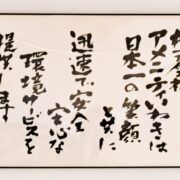 アメニティいわきは
日本一の笑顔
と共に
迅速で安全
安心な
環境サービスを
提供します